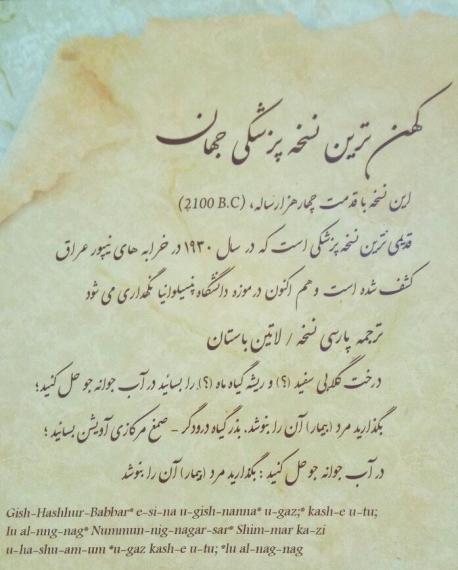 کهن ترین نسخه پزشکی جهان
این نسخه با قدمت چهار هزار ساله، (2100 B.C)
قدیمی ترین نسخه پزشکی است که در سال ۱۹۳۰ در خرابه های نیپور عراق
کشف شده است و هم اکنون در موزه دانشگاه پنسیلوانیا نگهداری می شود
ترجمه پارسی نسخه / لاتین باستان
درخت گلابی سفید (؟) و ریشه گیاه ماه (؟) را بسائید در آب جوانه جو حل کنید؛
بگذارید مرد (بیمار) آن را بنوشد، بذر گیاه درودگر - صمغ مرکازی آویشن بسائید ؛
در آب جوانه جو حل کنید ؛ بگذارید مرد (بیمار) آن را بنوشد
Gish-Hashhur-Babbar* e-si-na u-gish-nanna* u-gaz;* kash-e u-tu;
lu al-nng-nag* Nummun-nig-nagar-sar* Shim-mar ka-zi
u-ha-shu-am-um *u-gaz kash-e u-tu; *lu al-nag-nag